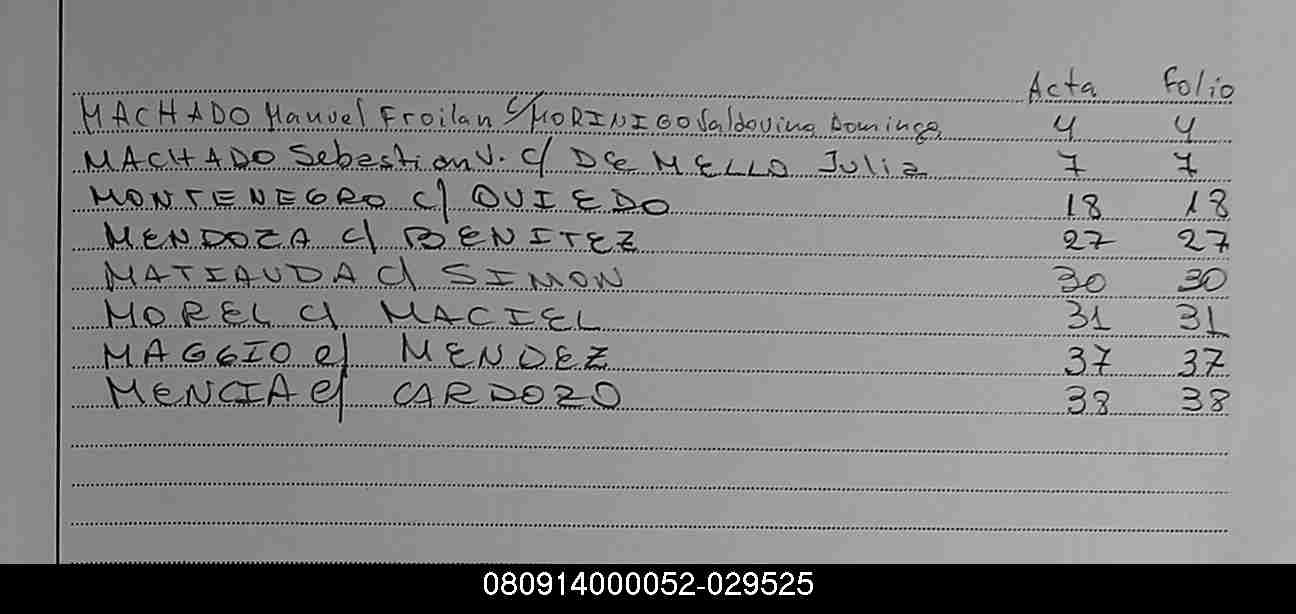 Acta Folio
MACHADO Manuel Froilan c/ MORINIGO Saldovina Dominga 4 4
MACHADO Sebastian V. c/ DE MELLO Julia 7 7
MONTENEGRO c/ OVIEDO 18 18
MENDOZA c/ BENITEZ 27 27
MATIAUDA c/ SIMON 30 30
MOREL c/ MACIEL 31 31
MAGGIO c/ MENDEZ 37 37
MENCIA c/ CARDOZO 38 38
080914000052-029525